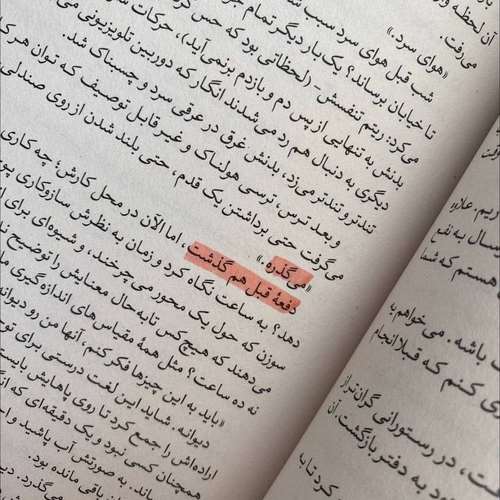 آن لحظه و
می‌رفت.
«هوای سرد.»
شب قبل هوای سرد سبب
تا خیابان برساند؟ یک بار دیگر تمام
می‌کرد: ریتم تنفسش - (لحظاتی بود که حس
بدنش به تنهایی از پس دم و بازدم برنمی‌آید)، حرکات
دیگری به دنبال هم رد می‌شدند انگار که دوربین تلویزیونی
تندتر و تندتر می‌زد، بدنش غرق در عرقی سرد و چسبناک شد.
و بعد ترس، ترسی هولناک و غیر قابل توصیف که توان هر
می‌گرفت حتی برداشتن یک قدم، حتی بلند شدن از روی صندلی
«می‌گذره.»
دفعهٔ قبل هم گذشت، اما الآن در محل کارش؛ چه کاری
دهد؟ به ساعت نگاه کرد و زمان به نظرش سازوکاری
سوزن که حول یک محور می‌چرخند، و شیوه‌ای برای
می‌دهند که هیچ کس تابه‌حال معنایش را توضیح
نه ده ساعت؟ مثل همهٔ مقیاس های اندازه‌گیری
«باید به این چیزها فکر کنم، آنها من رو دیوانه
دیوانه. شاید این لغت درستی برای
اراده‌اش را جمع کرد تا روی پاهایش
همچنان کسی نبود و یک دقیقه‌ای که
به صورتش آب باشید و
باقی مانده بود.
می‌گذرد.
علاوه
ارسال به نفع
هستم که شما
باشه. می‌خواهم
کنم که قبلا انجام
در رستورانی گران‌تر از
به دفتر بازگشت آن
کرد تا به